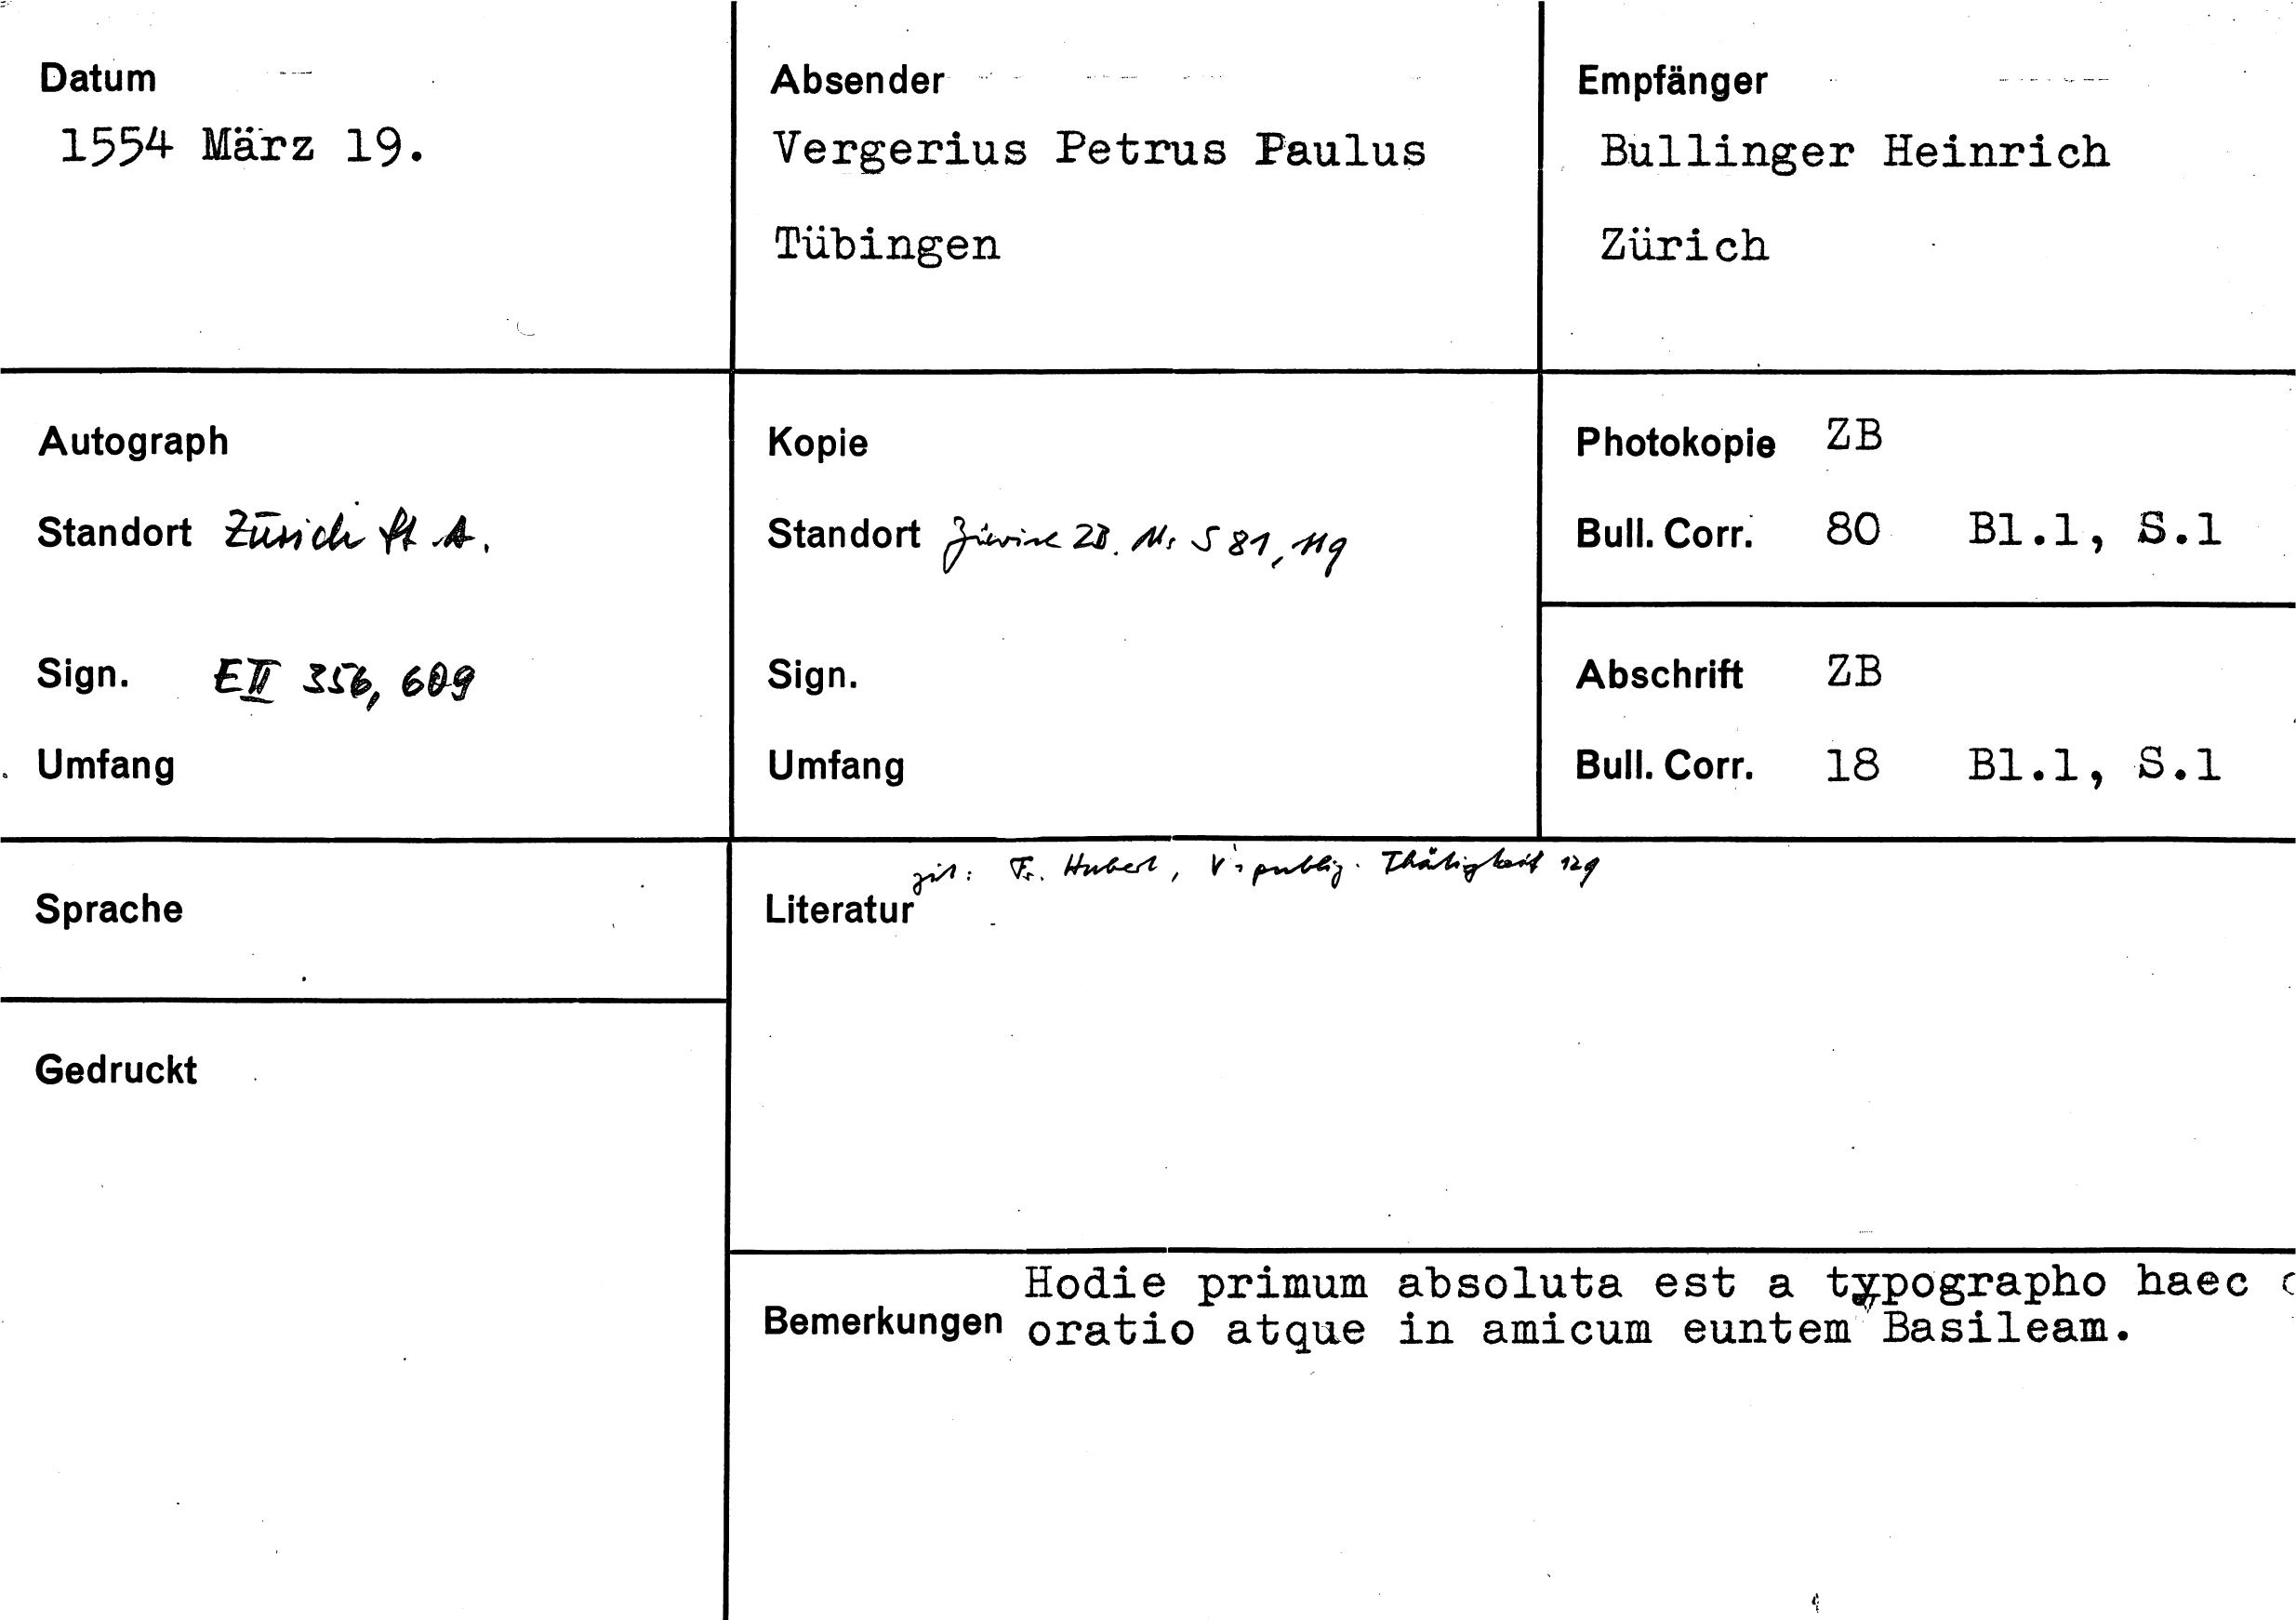 Datum
1554 März 19.
Absender
Vergerius Petrus Paulus
Tübingen
Empfänger
Bullinger Heinrich
Zürich
Autograph
Standort Zürich St.A.
Sign. EII 356, 609
Umfang
Kopie
Standort Zürich ZB. Ms S 81, 119
Sign.
Umfang
Photokopie ZB
Bull. Corr. 80 Bl.1, S.1
Abschrift ZB
Bull. Corr. 18 Bl.1, S.1
Sprache
Gedruckt
zit: Fr. Hubert, V's publiz. Thätigkeit 129
Literatur
Hodie primum absoluta est a typographo haec
Bemerkungen oratio atque in amicum euntem Basileam.